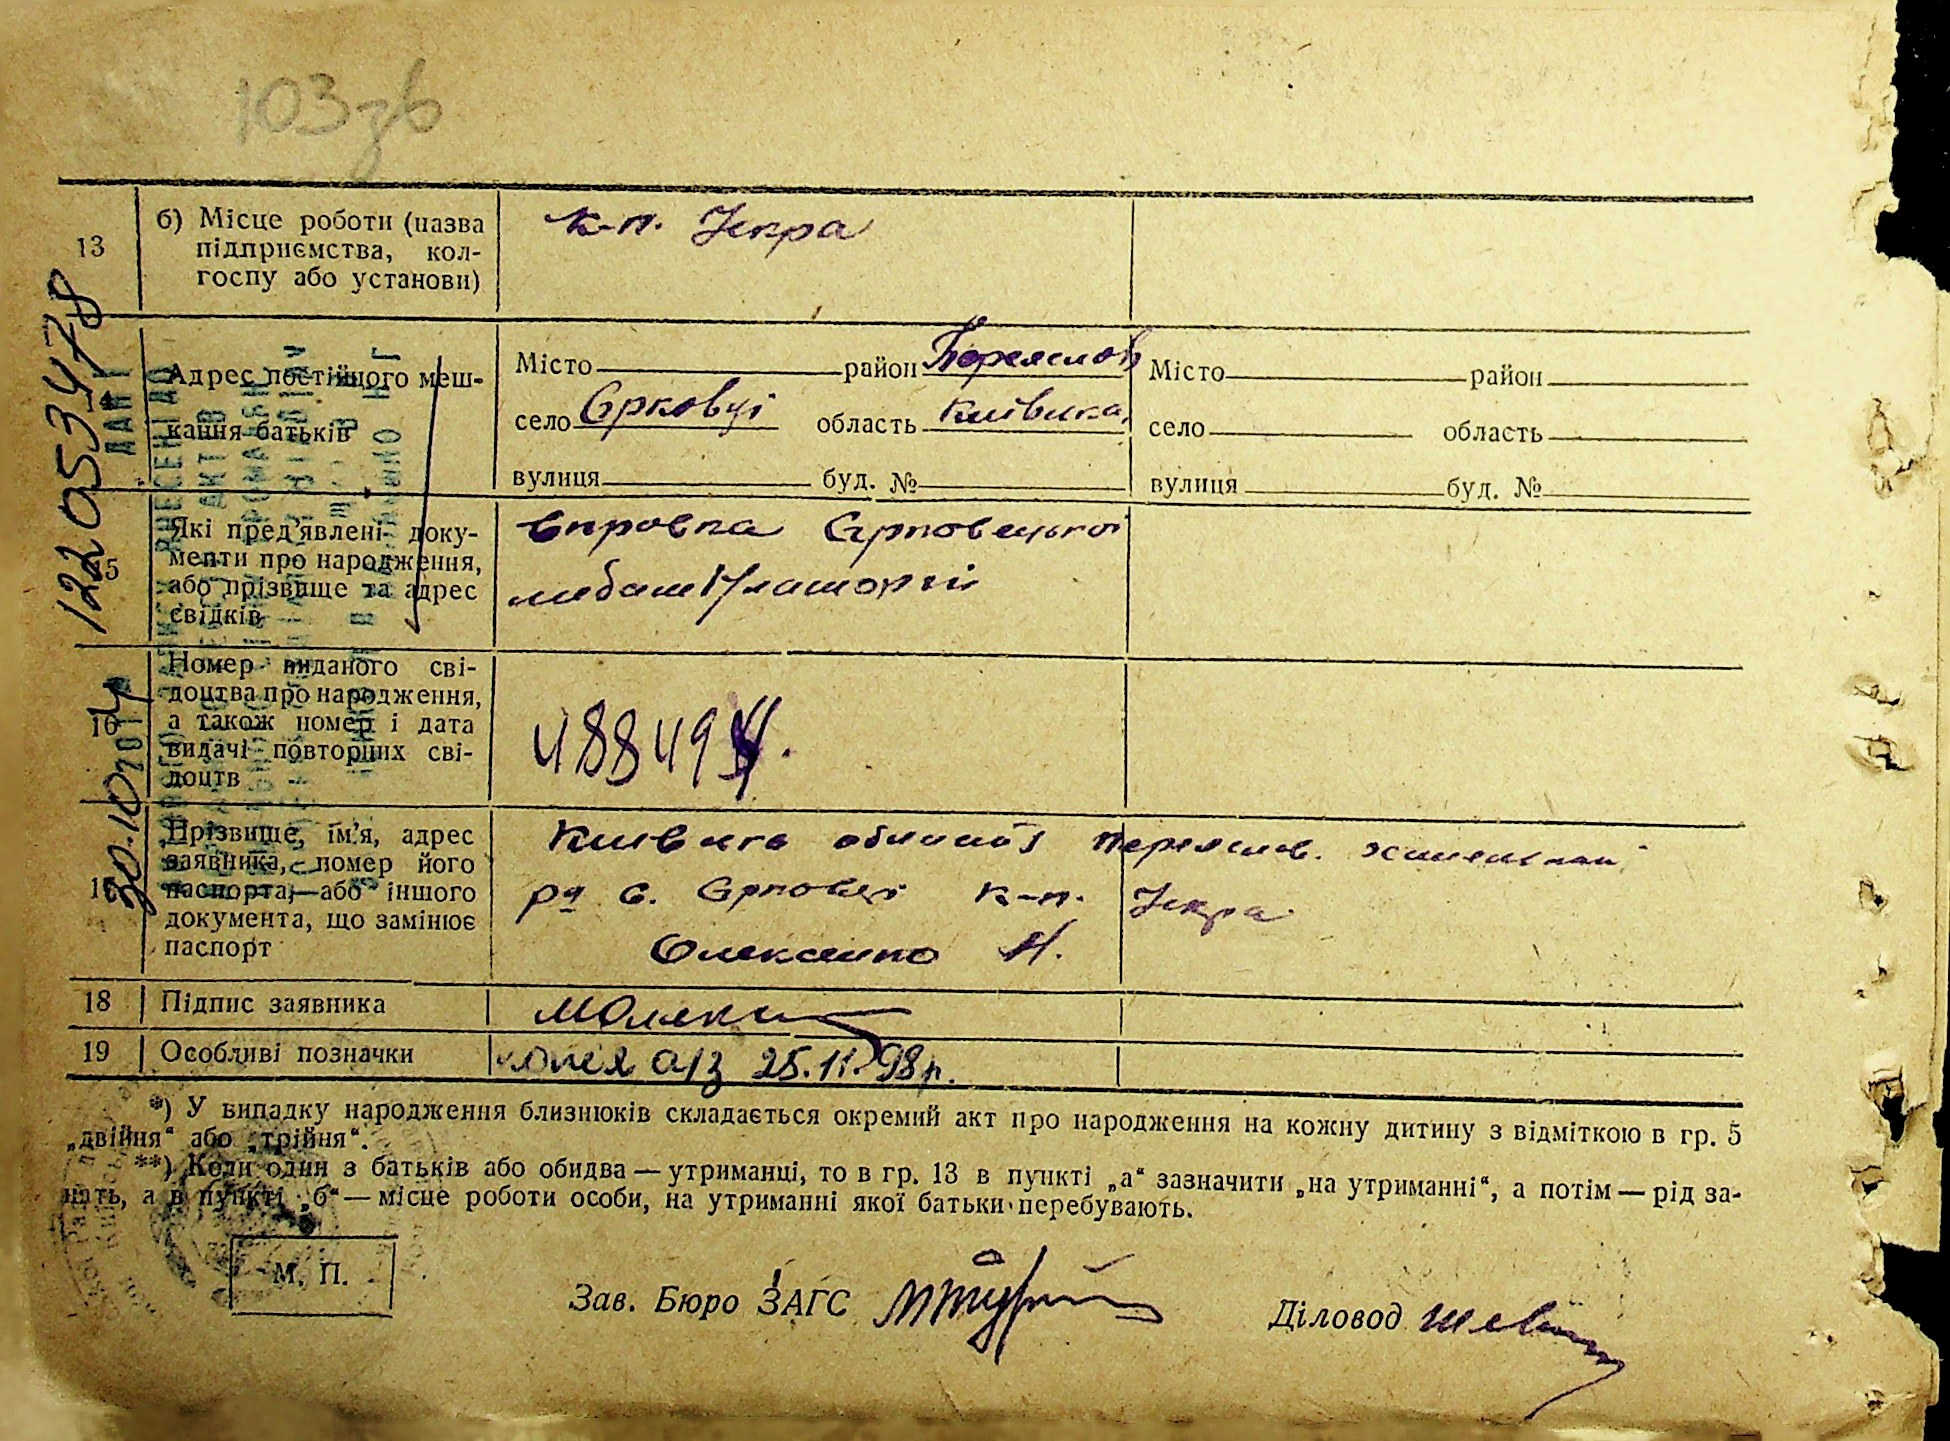 103зв
13
б) Місце роботи (назва
підприємства, кол-
госпу або установи)
к-п. Іскра
Адрес постійного меш-
кання батьків
Місто район Переяслов
село Єрковці область Київська
вулиця буд. №
Місто район
село область
вулиця буд. №
122 053478
30.10
Які пред'явлені доку-
менти про народження,
або прізвище та адрес
свідків
справка Єрковецької
16
Номер виданого сві-
доцтва про народження,
а також номер і дата
видачі повторних сві-
доцтв
488494.
Прізвище, ім'я, адрес
заявника, номер його
паспорта,—або іншого
документа, що замінює
паспорт
Київська області Переяслов.
с. Єрковці к-п. Іскра
Олексенко
18 Підпис заявника
19 Особливі позначки
копія а/з 25.11.98р.
*) У випадку народження близнюків складається окремий акт про народження на кожну дитину з відміткою в гр. 5
„двійня“ або „трійня“.
**) Коли один з батьків або обидва — утриманці, то в гр. 13 в пункті „а“ зазначити „на утриманні“, а потім — рід за-
нять, а в пункті „б“ — місце роботи особи, на утриманні якої батьки перебувають.
М. П.
Зав. Бюро ЗАГС
Діловод